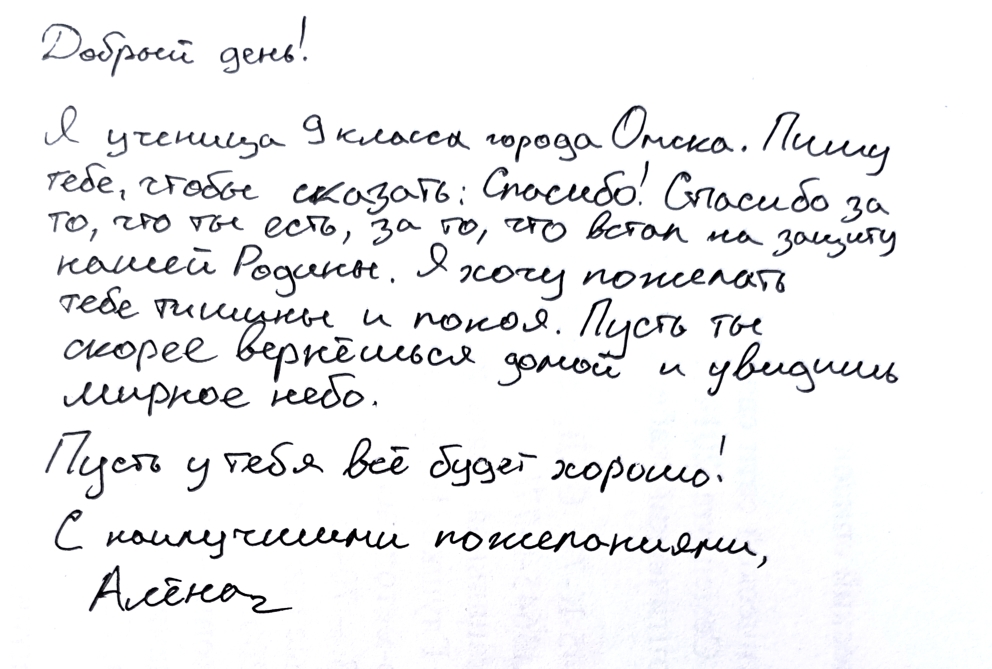 Добрый день!
Я ученица 9 класса города Омска. Пишу
тебе, чтобы сказать: Спасибо! Спасибо за
то, что ты есть, за то, что встал на защиту
нашей Родины. Я хочу пожелать
тебе тишины и покоя. Пусть ты
скорее вернёшься домой и увидишь
мирное небо.
Пусть у тебя всё будет хорошо!
С наилучшими пожеланиями,
Алёна